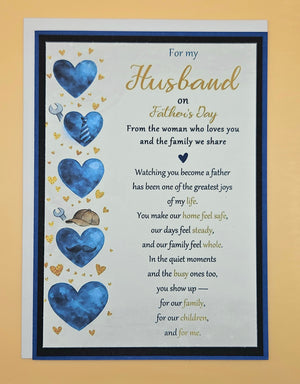 For my
Husband
on
Father's Day
From the woman who loves you
and the family we share
Watching you become a father
has been one of the greatest joys
of my life.
You make our home feel safe,
our days feel steady,
and our family feel whole.
In the quiet moments
and the busy ones too,
you show up —
for our family,
for our children,
and for me.